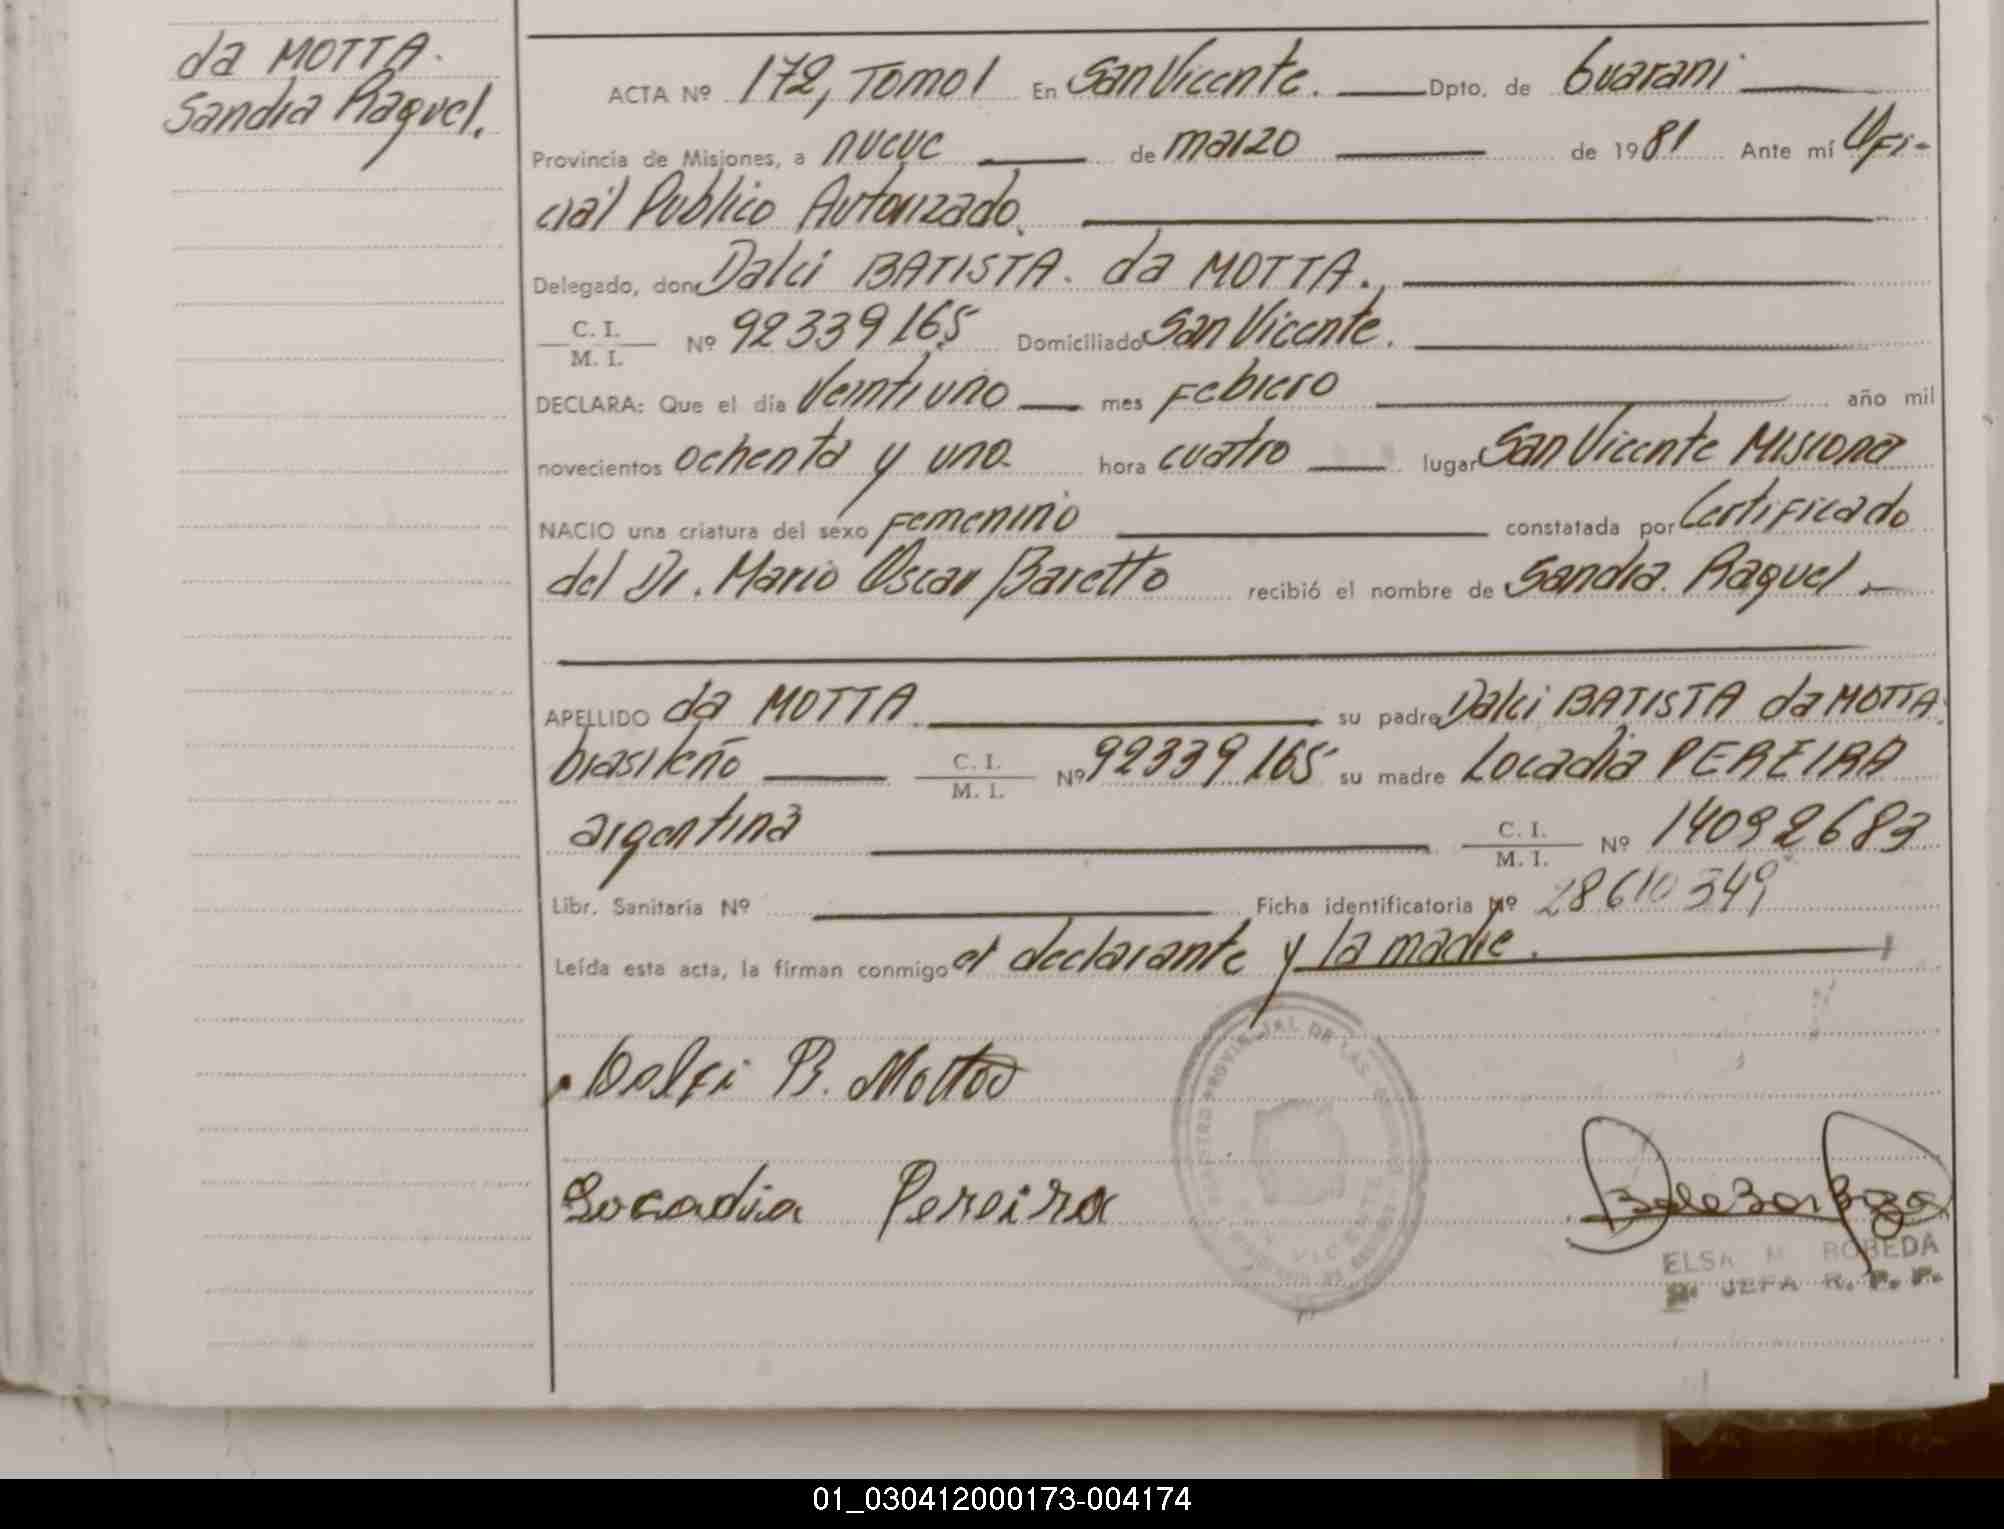 da MOTTA.
Sandra Raquel.
ACTA Nº 172, Tomo 1 En San Vicente. Dpto. de Guarani
Provincia de Misiones, a nueve de marzo de 1981 Ante mí Ofi-
cial Publico Autorizado.
Delegado, don Dalci BATISTA da MOTTA.
C. I.
M. I. Nº 92339165 Domiciliado San Vicente.
DECLARA: Que el día Veintiuno mes Febrero año mil
novecientos ochenta y uno hora cuatro lugar San Vicente Misiones
NACIO una criatura del sexo Femenino constatada por Certificado
del Dr. Mario Oscar Baretto recibió el nombre de Sandra Raquel
APELLIDO da MOTTA su padre Dalci BATISTA da MOTTA.
brasileño C. I.
M. I. Nº 92339165 su madre Locadia PEREIRA
argentina C. I.
M. I. Nº 14092683
Libr. Sanitaria Nº Ficha identificatoria Nº 28610349
Leída esta acta, la firman conmigo el declarante y la madre.
Dalci B. Motta
Locadia Pereira
ELSA M. ROBEDA
JEFA R. P. P.
01_030412000173-004174